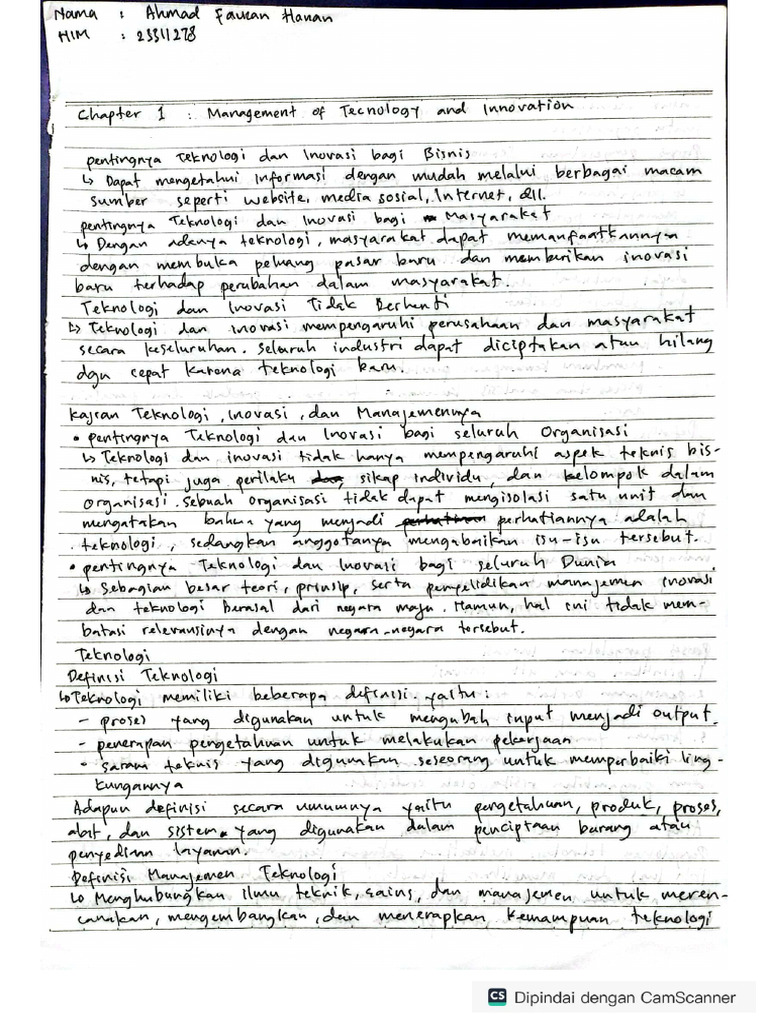 Nama : Ahmad Fauzan Hanan
NIM : 23311278
Chapter 1 : Management of Tecnology and Innovation
pentingnya Teknologi dan Inovasi bagi Bisnis
↳ Dapat mengetahui informasi dengan mudah melalui berbagai macam
sumber seperti website, media sosial, Internet, dll.
pentingnya Teknologi dan Inovasi bagi Masyarakat
↳ Dengan adanya teknologi, masyarakat dapat memanfaatkannya
dengan membuka peluang pasar baru dan memberikan inovasi
baru terhadap perubahan dalam masyarakat.
Teknologi dan Inovasi Tidak Berhenti
↳ Teknologi dan inovasi mempengaruhi perusahaan dan masyarakat
secara keseluruhan. Seluruh industri dapat diciptakan atau hilang
dgn cepat karena teknologi baru.
Kajian Teknologi, Inovasi, dan Manajemennya
• pentingnya Teknologi dan Inovasi bagi seluruh Organisasi
↳ Teknologi dan inovasi tidak hanya mempengaruhi aspek teknis bis-
nis, tetapi juga perilaku sikap individu, dan kelompok dalam
organisasi. Sebuah organisasi tidak dapat mengisolasi satu unit dan
mengatakan bahwa yang menjadi perhatiannya adalah
teknologi, sedangkan anggotanya mengabaikan isu-isu tersebut.
• pentingnya Teknologi dan Inovasi bagi seluruh Dunia
↳ Sebagian besar teori, prinsip, serta penyelidikan manajemen inovasi
dan teknologi berasal dari negara maju. Namun, hal ini tidak mem-
batasi relevansinya dengan negara-negara tersebut.
Teknologi
Definisi Teknologi
↳ Teknologi memiliki beberapa definisi yaitu :
- proses yang digunakan untuk mengubah input menjadi output.
- penerapan pengetahuan untuk melakukan pekerjaan
- saran teknis yang digunakan seseorang untuk memperbaiki ling-
kungannya
Adapun definisi secara umumnya yaitu pengetahuan, produk, proses,
alat, dan sistem yang digunakan dalam penciptaan barang atau
penyedian layanan.
Definisi Manajemen Teknologi
↳ Menghubungkan ilmu teknik, sains, dan manajemen untuk meren-
canakan, mengembangkan, dan menerapkan kemampuan teknologi
CS Dipindai dengan CamScanner